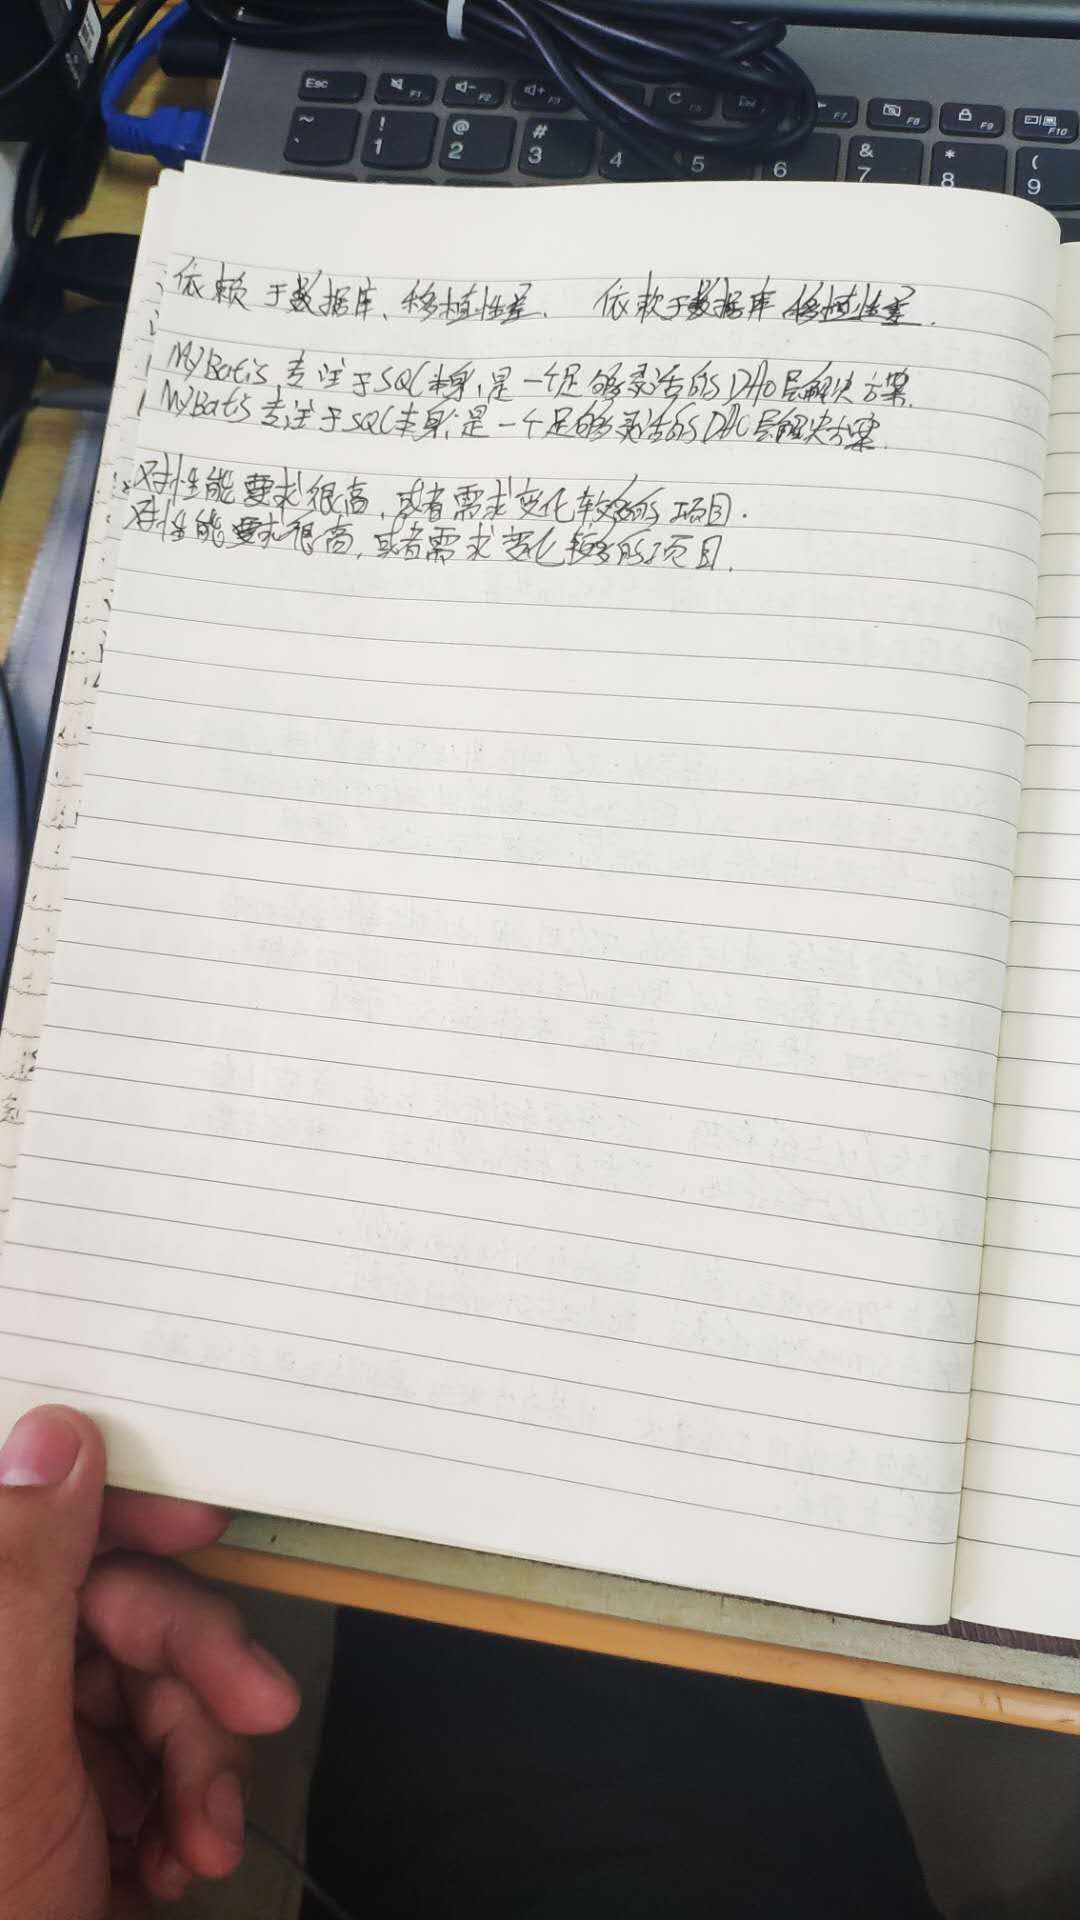 Esc F1 F2 F3 F5 F7 F8 F9 F10
~ ` ! 1 @ 2 # 3 4 5 6 & 7 * 8 ( 9
依赖于数据库、移植性差. 依赖于数据库 移植性差.
MyBatis 专注于SQL本身,是一个足够灵活的DAO层解决方案.
MyBatis 专注于SQL本身,是一个足够灵活的DAO层解决方案.
对性能要求很高,或者需求变化较多的项目.
对性能要求很高,或者需求变化较多的项目.